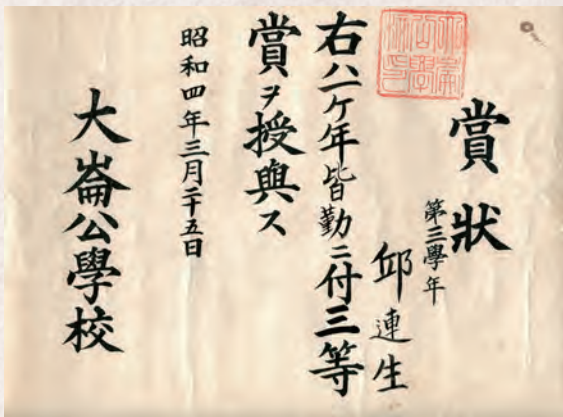 賞狀
第三學年
邱連生
右ハ一ケ年皆勤ニ付三等
賞ヲ授與ス
昭和四年三月二十五日
大崙公學校